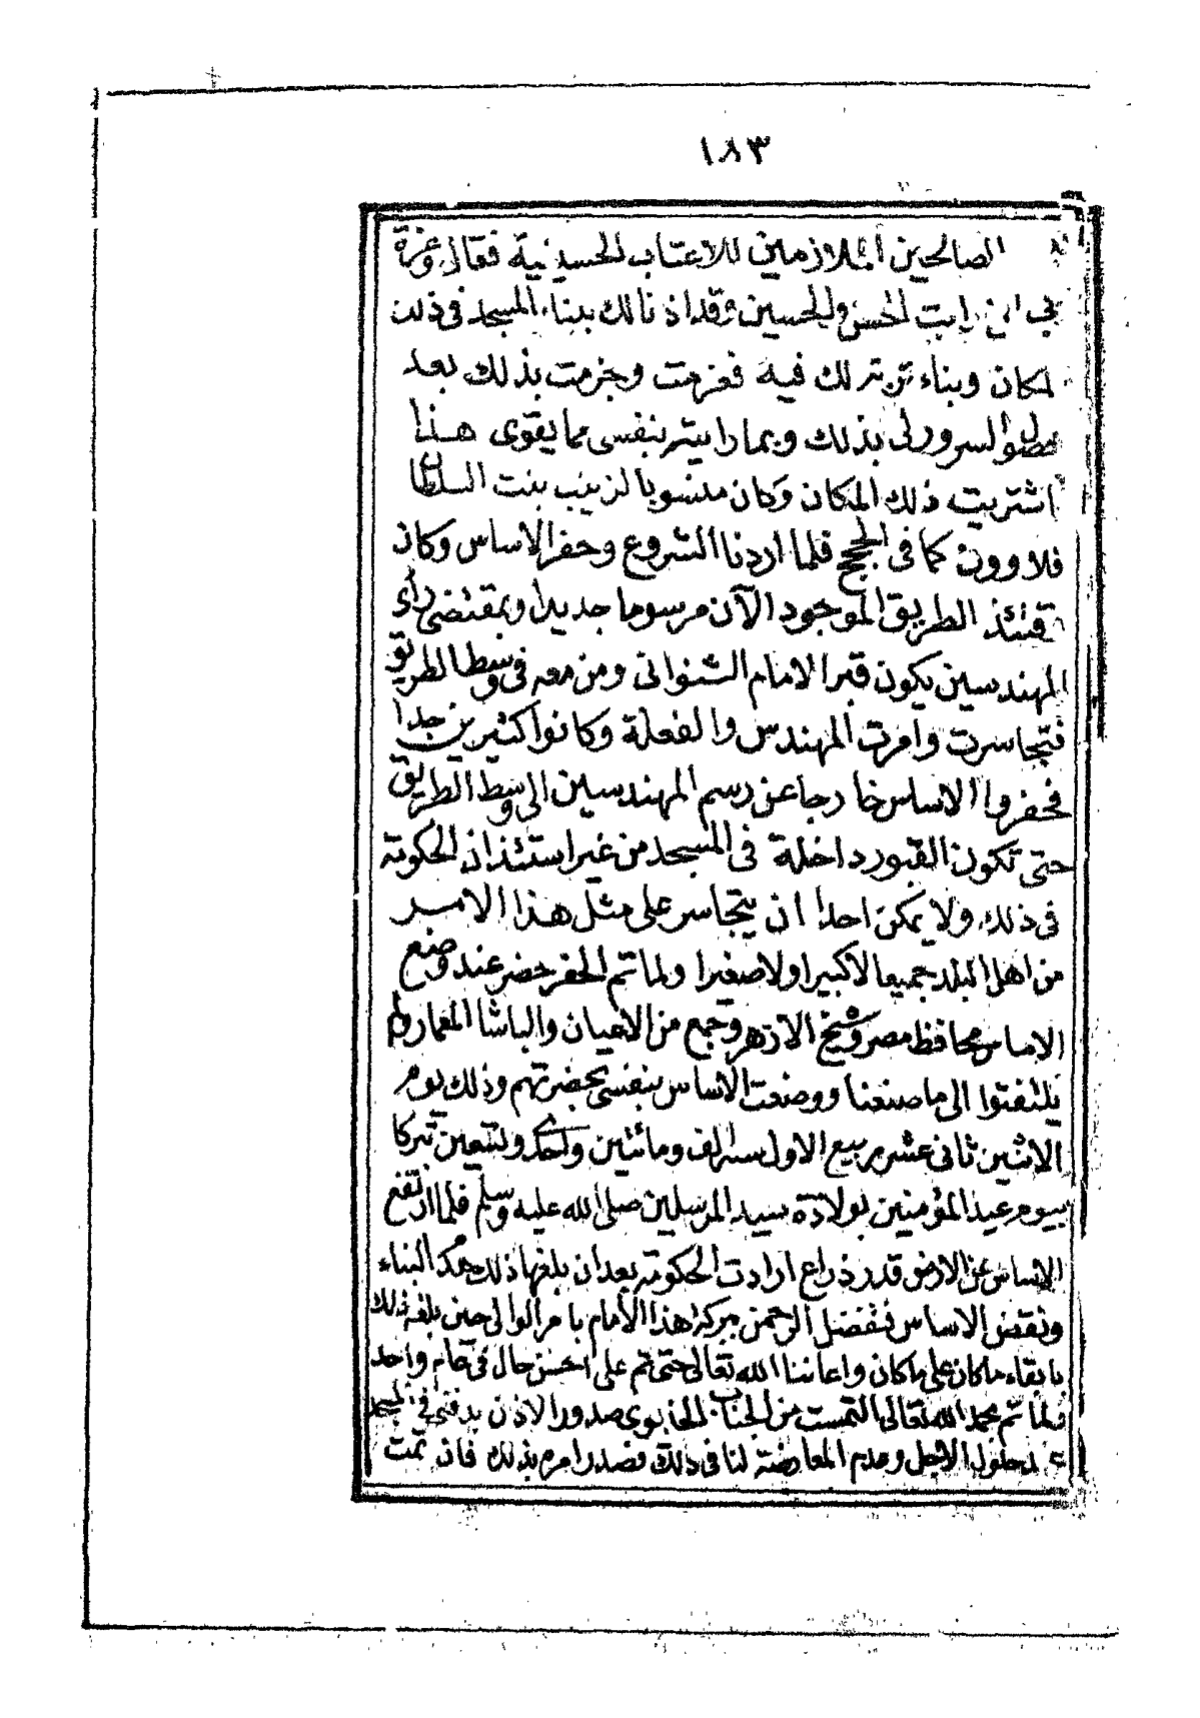 ١٨٣
الصالحين الملازمين للاعتاب الحسينية فقال وعزة
ربي اني رايت الحسن والحسين وقد اذنا لك ببناء المسجد في ذلك
المكان وبناء تربة لك فيه فعزمت وجزمت بذلك بعد
حصول السرور لي بذلك وبما رايته بنفسي مما يقوى هذا
اشتريت ذلك المكان وكان منسوبا لزينب بنت السلطان
قلاوون كما في الحجج فلما اردنا الشروع وحفر الاساس وكان
وقتئذ الطريق الموجود الآن مرسوما جديدا وبمقتضى رأى
المهندسين يكون قبر الامام الشنواني ومن معه في وسط الطريق
فتجاسرت وامرت المهندس والفعلة وكانوا كثيرين جدا
فحفروا الاساس خارجا عن رسم المهندسين الى وسط الطريق
حتى تكون القبور داخلة في المسجد من غير استئذان الحكومة
في ذلك ولا يمكن احدا ان يتجاسر على مثل هذا الامر
من اهل البلد جميعا لا كبيرا ولا صغيرا ولما تم الحفر حضر عند وضع
الاساس محافظ مصر وشيخ الازهر وجمع من الاعيان والباشا المعمار ولم
يلتفتوا الى ما صنعنا ووضعت الاساس بنفسي بحضرتهم وذلك يوم
الاثنين ثاني عشر ربيع الاول سنة الف ومائتين واحدى وتسعين تبركا
بيوم عيد المؤمنين بولادة سيد المرسلين صلى الله عليه وسلم فلما ارتفع
الاساس عن الارض قدر ذراع ارادت الحكومة بعد ان بلغها ذلك هدم البناء
ونقض الاساس فتفضل الرحمن ببركة هذا الامام بامر الوالي حين بلغه ذلك
بابقاء ما كان على ما كان واعاننا الله تعالى حتى تم على احسن حال في عام واحد
فلما تم بحمد الله تعالى التمست من الجناب الخديوي صدور الاذن بدفني في المسجد
عند حلول الاجل وعدم المعارضة لنا في ذلك فصدر امره بذلك فان تمت